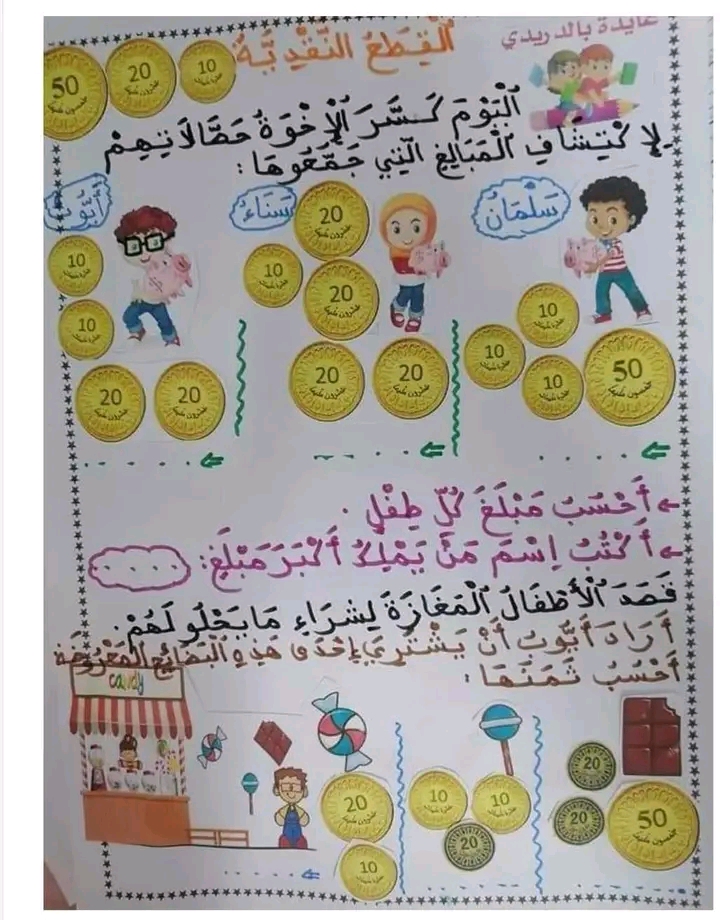 عايدة بالدريدي
اَلْقِطَعُ النَّقْدِيَّةُ
10
20
50
اَلْيَوْمَ كَسَّرَ اَلْإِخْوَةُ حَصَّالَاتِهِمْ
لِاكْتِشَافِ اَلْمَبَالِغِ الَّتِي جَمَّعُوهَا :
سَلْمَانُ
سَنَاءُ
أَيُّوبُ
10
10
10
50
20
10
20
20
20
10
10
20
20
أَحْسُبُ مَبْلَغَ كُلِّ طِفْلٍ .
أَكْتُبُ اِسْمَ مَنْ يَمْلِكُ أَكْبَرَ مَبْلَغٍ :
قَصَدَ اَلْأَطْفَالُ اَلْمَغَازَةَ لِشِرَاءِ مَا يَحْلُو لَهُمْ .
أَرَادَ أَيُّوبُ أَنْ يَشْتَرِيَ إِحْدَى هَذِهِ اَلْبَضَائِعِ اَلْمَعْرُوضَةِ
أَحْسُبُ ثَمَنَهَا :
candy
20
20
50
10
10
20
20
10